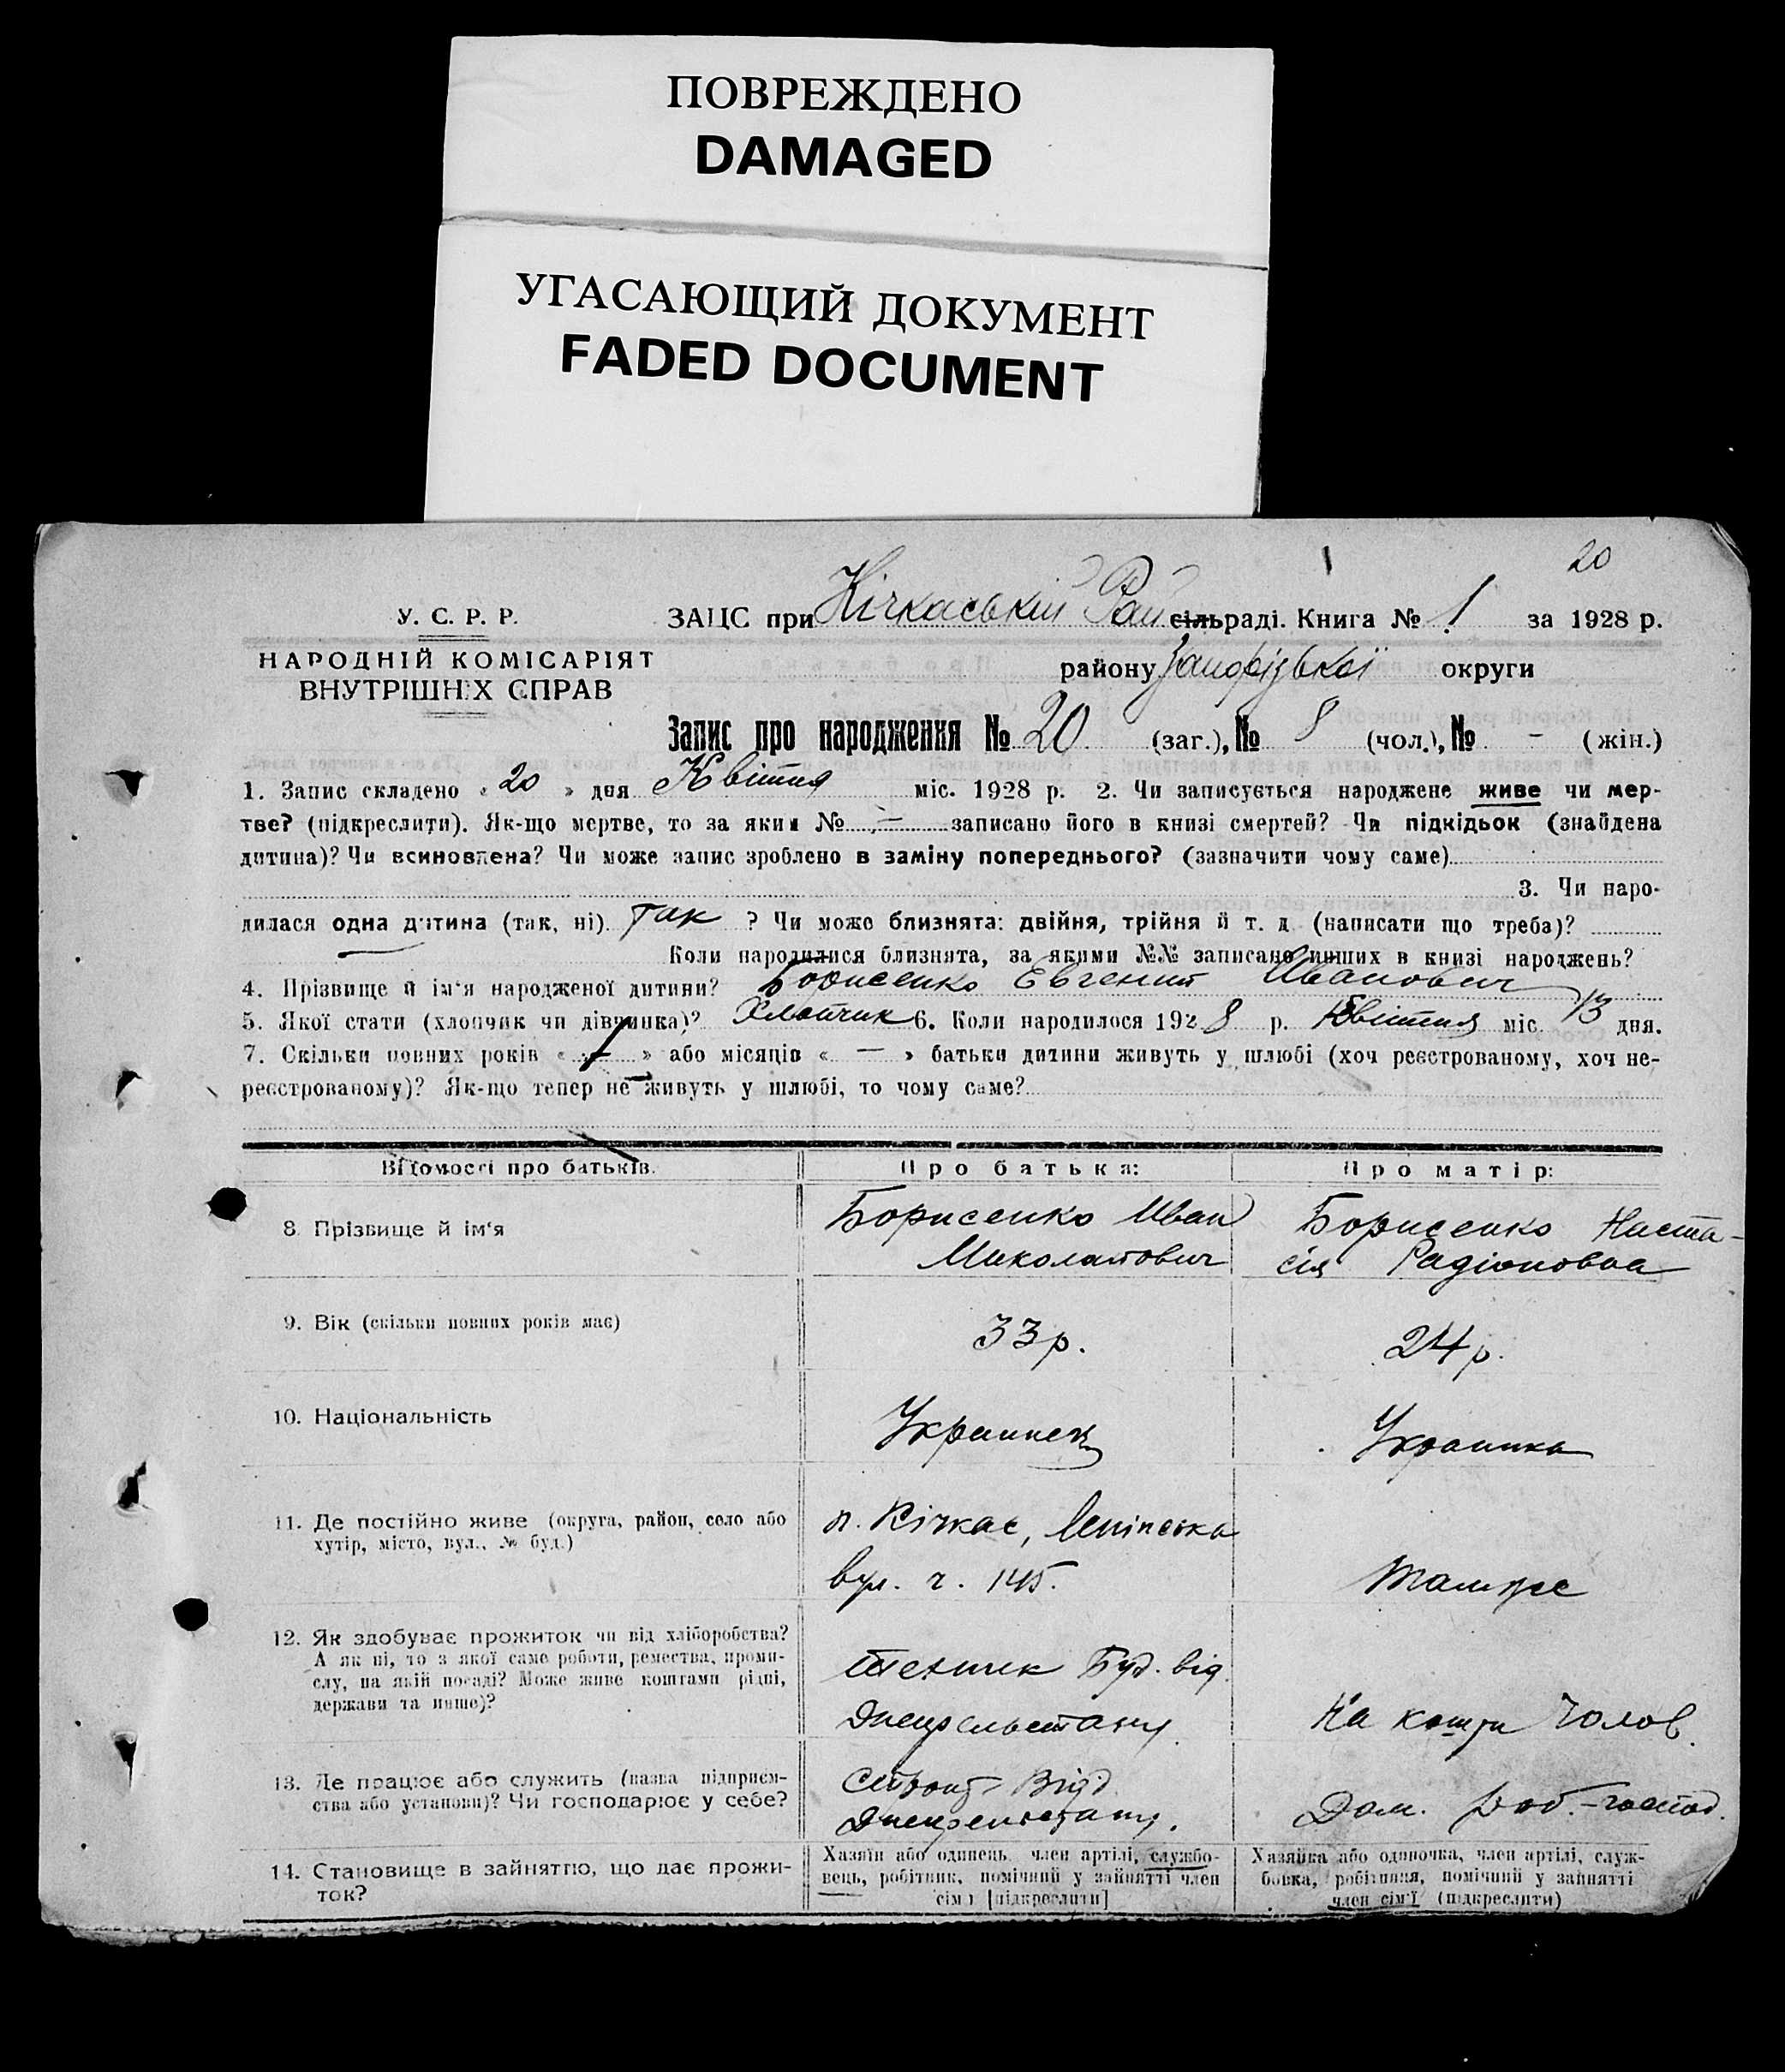 ПОВРЕЖДЕНО
DAMAGED
УГАСАЮЩИЙ ДОКУМЕНТ
FADED DOCUMENT
20
У. С. Р. Р.
НАРОДНІЙ КОМІСАРІЯТ
ВНУТРІШНІХ СПРАВ
ЗАЦС при Кічкаській Рай сільраді. Книга № 1 за 1928 р.
району Запорізької округи
Запис про народження № 20 (заг.), № 8 (чол.), № - (жін.)
1. Запис складено « 20 » дня Квітня міс. 1928 р. 2. Чи записується народжене живе чи мер-
тве? (підкреслити). Як-що мертве, то за яким № — записано його в книзі смертей? Чи підкідьок (знайдена
дитина)? Чи всиновлена? Чи може запис зроблено в заміну попереднього? (зазначити чому саме)
3. Чи наро-
дилася одна дитина (так, ні) Так ? Чи може близнята: двійня, трійня й т. д. (написати що треба)?
— Коли народилися близнята, за якими №№ записано инших в книзі народжень?
4. Прізвище й ім'я народженої дитини? Борисенко Евгений Иванович
5. Якої стати (хлопчик чи дівчинка)? Хлопчик 6. Коли народилося 1928 р. Квітня міс. 13 дня.
7. Скільки повних років « 1 » або місяців « — » батьки дитини живуть у шлюбі (хоч реєстрованому, хоч не-
реєстрованому)? Як-що тепер не живуть у шлюбі, то чому саме?
Відомості про батьків.
Про батька:
Про матір:
8. Прізвище й ім'я
Борисенко Иван
Миколайович
Борисенко Наста-
сія Радіоновна
9. Вік (скільки повних років має)
33 р.
24 р.
10. Національність
Украинец
Украинка
11. Де постійно живе (округа, район, село або
хутір, місто, вул., № буд.)
п. Кічкас, Ленінська
вул. ч. 145.
Там же
12. Як здобуває прожиток чи від хліборобства?
А як ні, то з якої саме роботи, ремества, проми-
слу, на якій посаді? Може живе коштами рідні,
держави та инше)?
Техник Буд. від.
Днепрельстану
На кошти Чолов.
13. Де працює або служить (назва підприєм-
ства або установи)? Чи господарює у себе?
Відд.
Днепрельстану.
Дом. роб.-господ.
14. Становище в зайняттю, що дає прожи-
ток?
Хазяїн або одинець, член артілі, службо-
вець, робітник, помічний у зайнятті член
сім'ї [підкреслити]
Хазяйка або одиночка, член артілі, служ-
бовка, робітниця, помічний у зайнятті
член сім'ї (підкреслити)